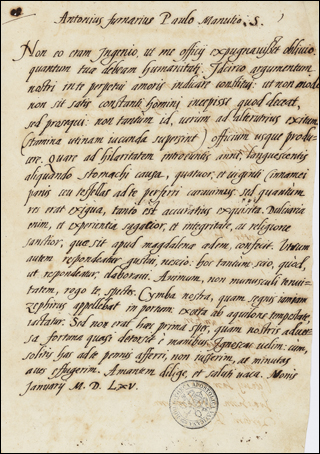 Antonius furnarius Paulo Manutio. S.
Non eo eram Ingenio, ut me officij expugnauisset obliuio
quantum tuae deberem humanitati. Idcirco argumentum
nostri in te perpetui amoris indicare constitui: ut non modo
non sit satis constanti homini incepisse quod deceat,
sed prosequi: non tantum id, uerum ad ulterius exitum
(stamina utinam iucunda supersint) officium usque produ-
cere. Quare ad hilaritatem introeuntis anni, languescentis
aliquando stomachi causa, quatuor, et uiginti cinnamei
panis seu tesellas ad te perferri curauimus. sed quantum
res erat exigua, tanto est accuratius exquisita. Dulciaria
enim, et experientia sagacior, et integritate, ac religione
sanctior, quae sit apud magdalenae aedem, confecit. Utrum
autem respondeatur gustui, nescio: hoc tantum scio, quod,
ut respondeatur, elaboraui. Animum, non munusculi tenui-
tatem, rego te, spectes. Cymba nostra, quam segnis iamiam
zephirus appellebat in portum exorta ab aquilone tempestate,
iactatur. Sed non erat haec prima spes, quam nostris aduer-
sa fortuna quasi detorsit è manibus. Ignoscas uelim: cum,
solitis has ad te pronis afferri, non iusserim, at minutas
aues effugerim. Amantem dilige, et saluti uaca. Nonis
January M. D. LXV.